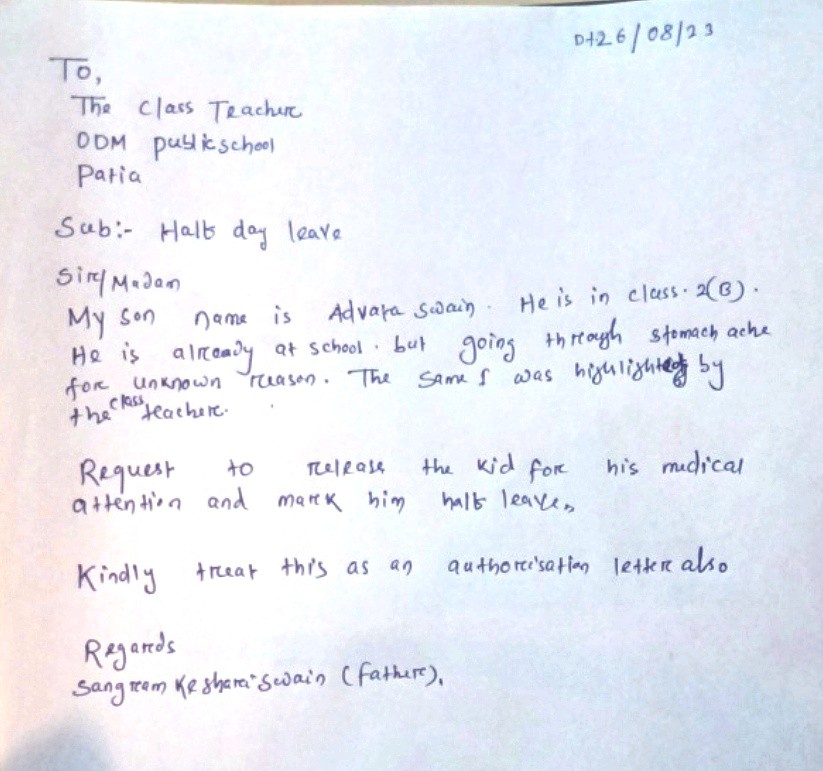 Dt 26/08/23
To,
The Class Teacher
ODM public school
Patia
Sub:- Half day leave
Sir/Madam
My son name is Advara Swain. He is in class. 2(B).
He is already at school. but going through stomach ache
for unknown reason. The same I was highlighted by
the class teacher.
Request to release the kid for his medical
attention and mark him half leave.
Kindly treat this as an authorisation letter also
Regards
Sangram Keshari Swain (father).